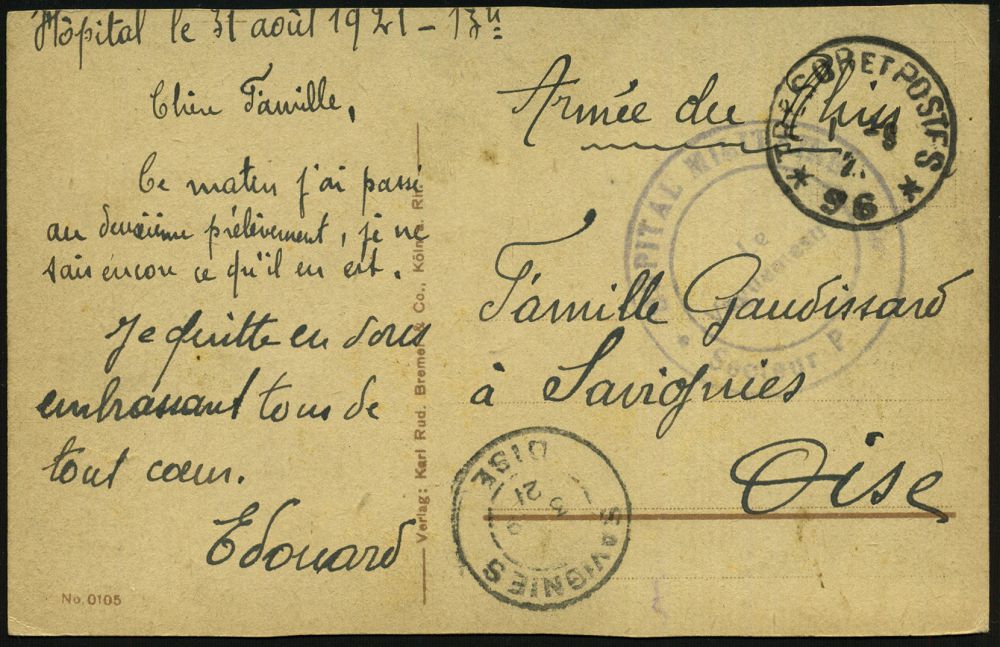 Hôpital le 31 août 1921 - 13h
Chère Famille,
Ce matin j'ai passé
au deuxième prélèvement, je ne
sais encore ce qu'il en est.
Je quitte en vous
embrassant tous de
tout cœur.
Edouard
No. 0105
Verlag: Karl Rud. Bremer & Co., Köln a. Rh.
Armée du Rhin
Famille Gaudissard
à Savignies
Oise
TRESOR ET POSTES
96
HOPITAL MILITAIRE
Secteur P
SAVIGNIES
OISE
3
21